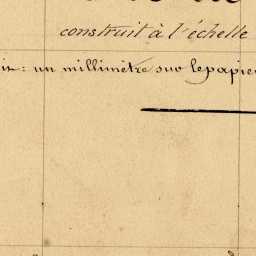 construit à l'échelle
un millimètre sur le papie